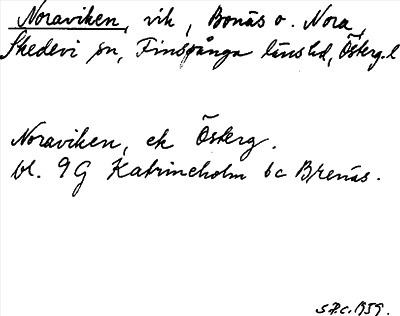 Noraviken, vik, Bonäs o. Nora,
Skedevi sn, Finspånga länshd, Österg. l
Noraviken, ek Österg.
bl. 9G Katrineholm 6c Brenäs.
1959.